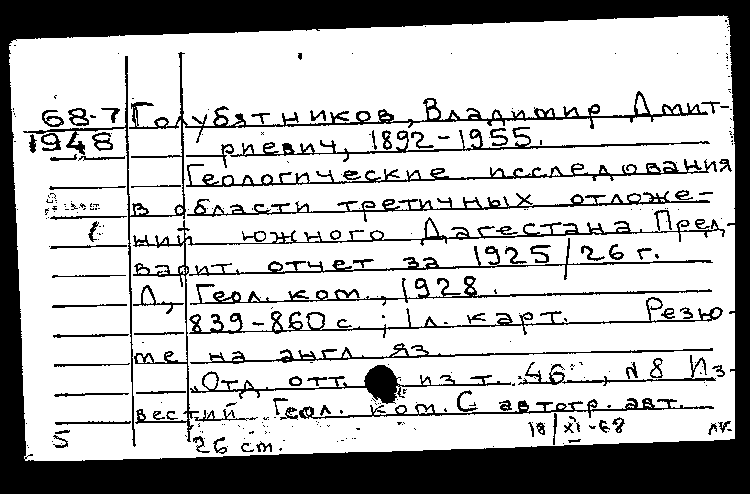 68-7 Голубятников, Владимир Дмит-
1948 риевич, 1892-1955.
Геологические исследования
в области третичных отложе-
ний южного Дагестана. Пред-
варит. отчет за 1925/26 г.
Л., Геол. ком., 1928.
839-860 с.; 1 л. карт. Резю-
ме на англ. яз.
Отд. отт. из т. 46, N8 Из-
вестий Геол. ком. С автогр. авт.
5 26 cm. 18/XI-68 ЛК